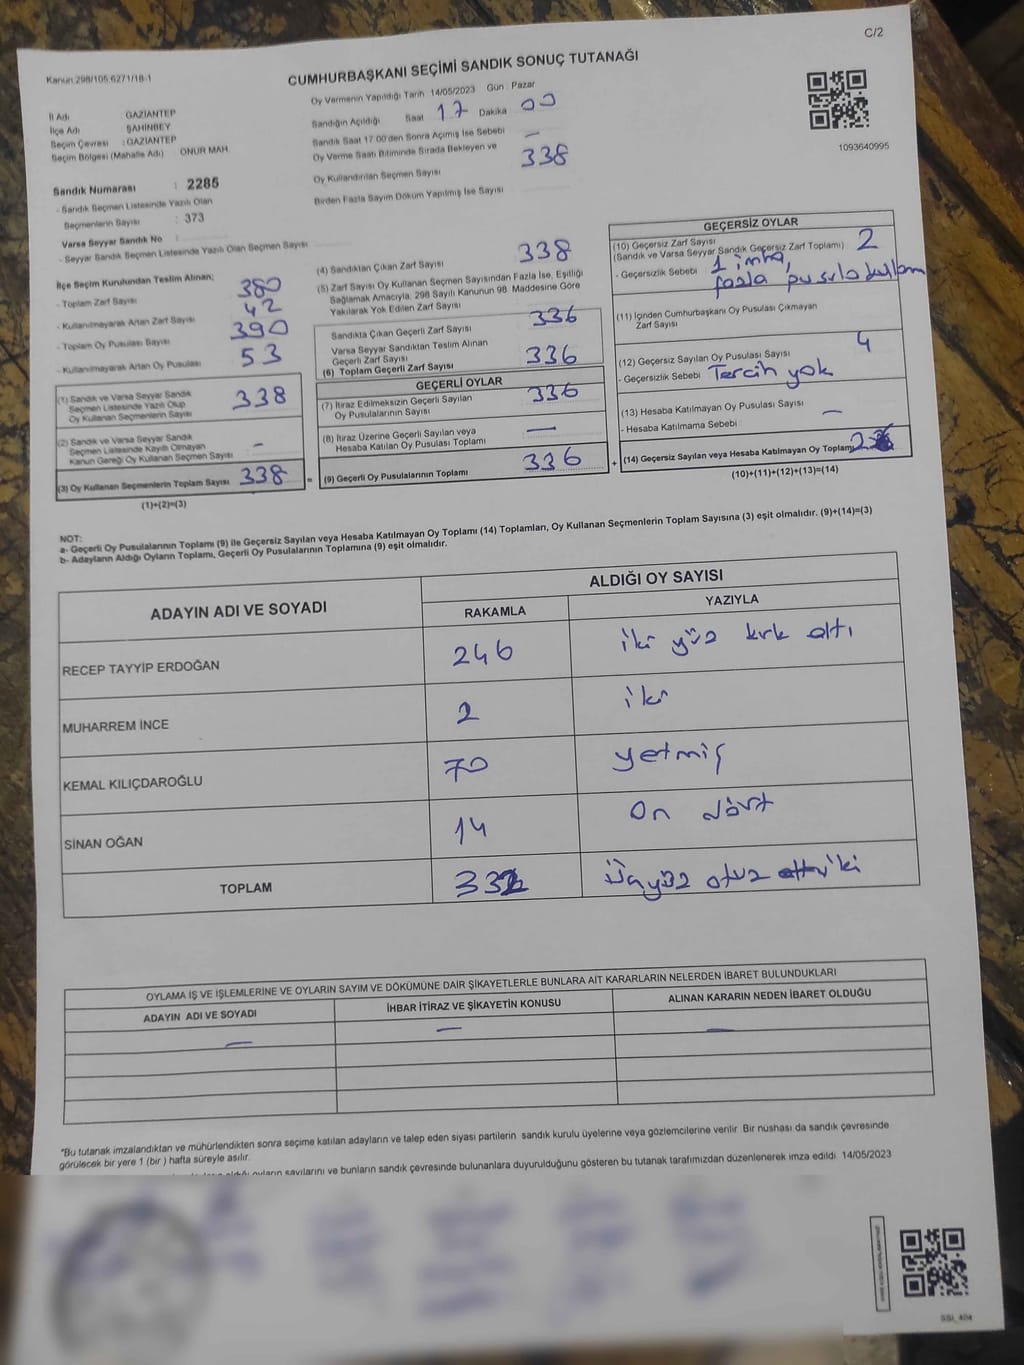 C/2
Kanun:298/105.6271/18-1
CUMHURBAŞKANI SEÇİMİ SANDIK SONUÇ TUTANAĞI
İl Adı GAZİANTEP
İlçe Adı ŞAHİNBEY
Seçim Çevresi : GAZİANTEP
Seçim Bölgesi (Mahalle Adı) ONUR MAH.
Sandık Numarası : 2285
- Sandık Seçmen Listesinde Yazılı Olan
Seçmenlerin Sayısı : 373
Varsa Seyyar Sandık No :
- Seyyar Sandık Seçmen Listesinde Yazılı Olan Seçmen Sayısı
Oy Vermenin Yapıldığı Tarih 14/05/2023 Gün : Pazar
Sandığın Açıldığı Saat 17 Dakika 00
Sandık Saat 17:00'den Sonra Açımış İse Sebebi —
Oy Verme Saati Bitiminde Sırada Bekleyen ve
Oy Kullandırılan Seçmen Sayısı 338
Birden Fazla Sayım Döküm Yapılmış İse Sayısı
1093640995
İlçe Seçim Kurulundan Teslim Alınan;
- Toplam Zarf Sayısı 380
- Kullanılmayarak Artan Zarf Sayısı 42
- Toplam Oy Pusulası Sayısı 390
- Kullanılmayarak Artan Oy Pusulası 53
(1) Sandık ve Varsa Seyyar Sandık
Seçmen Listesinde Yazılı Olup
Oy Kullanan Seçmenlerin Sayısı 338
(2) Sandık ve Varsa Seyyar Sandık
Seçmen Listesinde Kayıtlı Olmayan
Kanun Gereği Oy Kullanan Seçmen Sayısı -
(3) Oy Kullanan Seçmenlerin Toplam Sayısı 338 =
(1)+(2)=(3)
(4) Sandıktan Çıkan Zarf Sayısı 338
(5) Zarf Sayısı Oy Kullanan Seçmen Sayısından Fazla İse, Eşitliği
Sağlamak Amacıyla, 298 Sayılı Kanunun 98. Maddesine Göre
Yakılarak Yok Edilen Zarf Sayısı
Sandıkta Çıkan Geçerli Zarf Sayısı 336
Varsa Seyyar Sandıktan Teslim Alınan
Geçerli Zarf Sayısı
(6) Toplam Geçerli Zarf Sayısı 336
GEÇERLİ OYLAR
(7) İtiraz Edilmeksizin Geçerli Sayılan
Oy Pusulalarının Sayısı 336
(8) İtiraz Üzerine Geçerli Sayılan veya
Hesaba Katılan Oy Pusulası Toplamı —
(9) Geçerli Oy Pusulalarının Toplamı 336 +
GEÇERSİZ OYLAR
(10) Geçersiz Zarf Sayısı
(Sandık ve Varsa Seyyar Sandık Geçersiz Zarf Toplamı) 2
- Geçersizlik Sebebi 1 imha,
fazla pusula
(11) İçinden Cumhurbaşkanı Oy Pusulası Çıkmayan
Zarf Sayısı
(12) Geçersiz Sayılan Oy Pusulası Sayısı 4
- Geçersizlik Sebebi Tercih yok
(13) Hesaba Katılmayan Oy Pusulası Sayısı —
- Hesaba Katılmama Sebebi
(14) Geçersiz Sayılan veya Hesaba Katılmayan Oy Toplamı
(10)+(11)+(12)+(13)=(14)
NOT:
a- Geçerli Oy Pusulalarının Toplamı (9) ile Geçersiz Sayılan veya Hesaba Katılmayan Oy Toplamı (14) Toplamları, Oy Kullanan Seçmenlerin Toplam Sayısına (3) eşit olmalıdır. (9)+(14)=(3)
b- Adayların Aldığı Oyların Toplamı, Geçerli Oy Pusulalarının Toplamına (9) eşit olmalıdır.
ADAYIN ADI VE SOYADI ALDIĞI OY SAYISI
RAKAMLA YAZIYLA
RECEP TAYYİP ERDOĞAN 246 iki yüz kırk altı
MUHARREM İNCE 2 iki
KEMAL KILIÇDAROĞLU 70 yetmiş
SİNAN OĞAN 14 On dört
TOPLAM 332 Üçyüz otuz iki
OYLAMA İŞ VE İŞLEMLERİNE VE OYLARIN SAYIM VE DÖKÜMÜNE DAİR ŞİKAYETLERLE BUNLARA AİT KARARLARIN NELERDEN İBARET BULUNDUKLARI
ADAYIN ADI VE SOYADI İHBAR İTİRAZ VE ŞİKAYETİN KONUSU ALINAN KARARIN NEDEN İBARET OLDUĞU
— — —
"Bu tutanak imzalandıktan ve mühürlendikten sonra seçime katılan adayların ve talep eden siyasi partilerin sandık kurulu üyelerine veya gözlemcilerine verilir. Bir nüshası da sandık çevresinde
görülecek bir yere 1 (bir ) hafta süreyle asılır.
oyların sayılarını ve bunların sandık çevresinde bulunanlara duyurulduğunu gösteren bu tutanak tarafımızdan düzenlenerek imza edildi. 14/05/2023